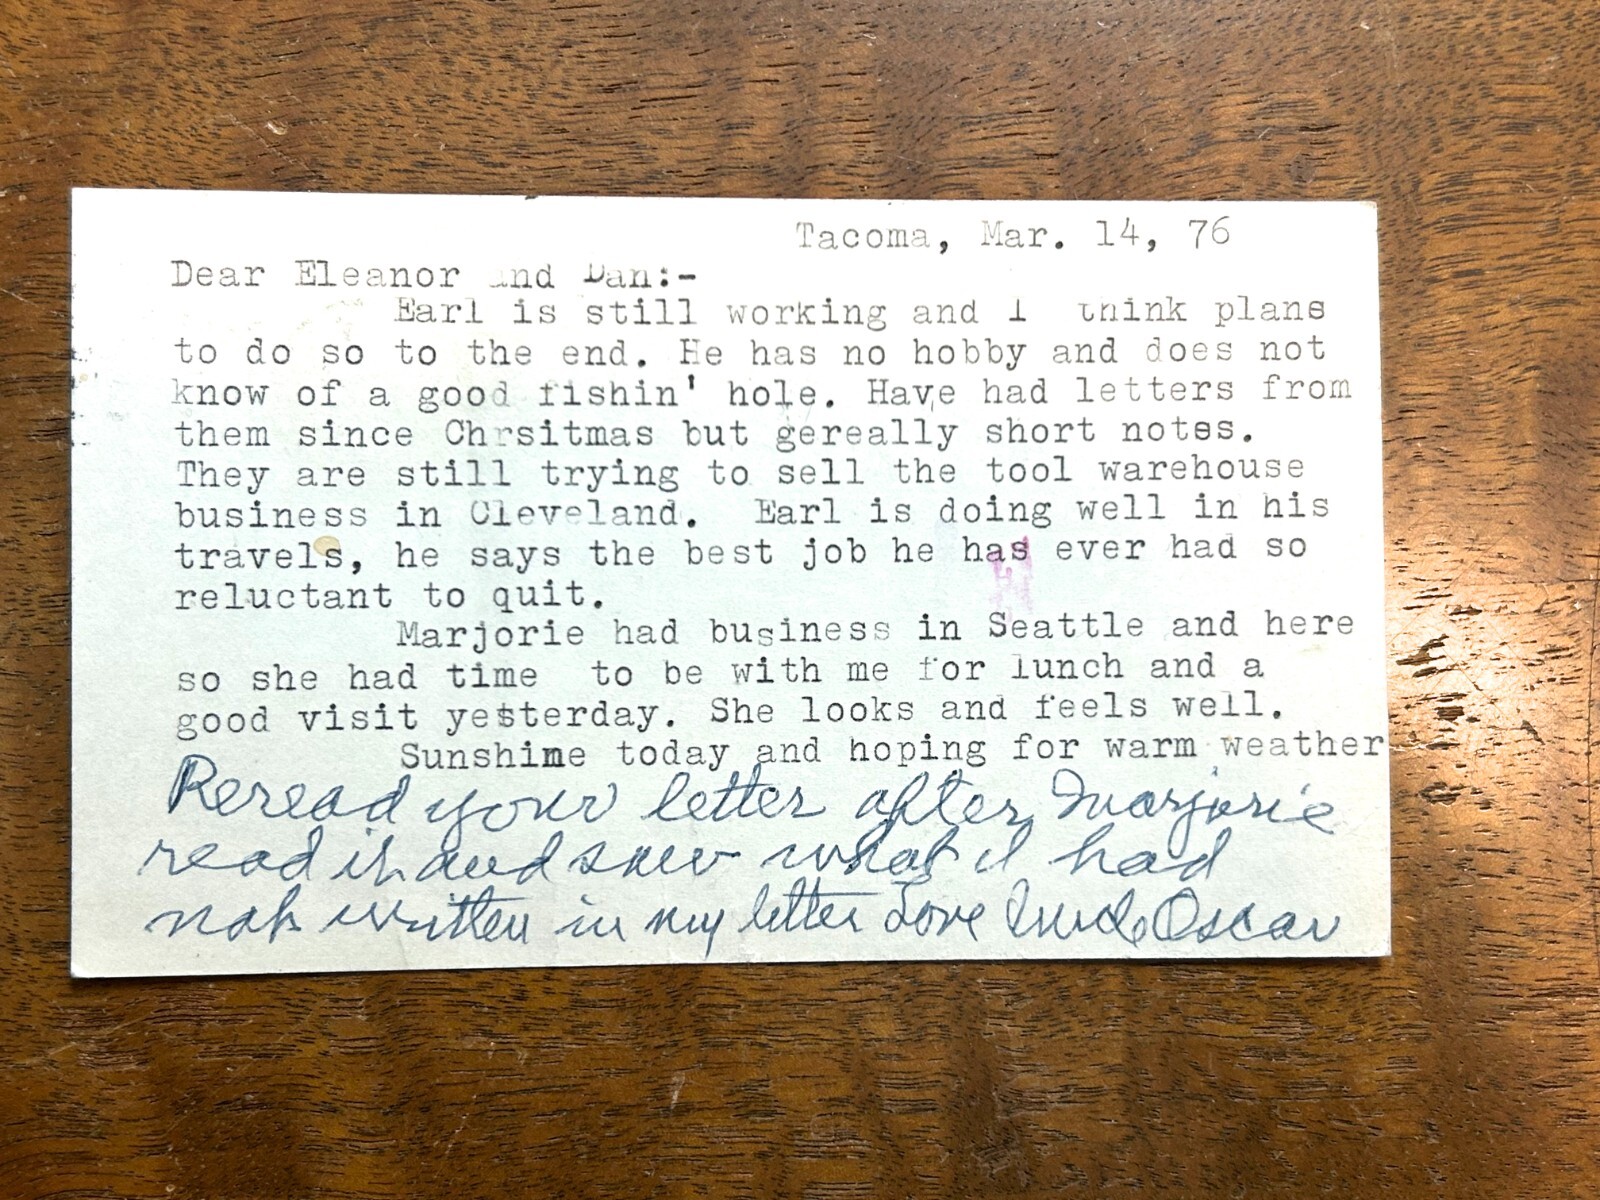 Tacoma, Mar. 14, 76
Dear Eleanor and Dan:-
Earl is still working and I think plans
to do so to the end. He has no hobby and does not
know of a good fishin' hole. Have had letters from
them since Chrsitmas but gereally short notes.
They are still trying to sell the tool warehouse
business in Cleveland. Earl is doing well in his
travels, he says the best job he has ever had so
reluctant to quit.
Marjorie had business in Seattle and here
so she had time to be with me for lunch and a
good visit yesterday. She looks and feels well.
Sunshime today and hoping for warm weather
Reread your letter after Marjorie
read it and saw what I had
not written in my letter Love Uncle Oscar